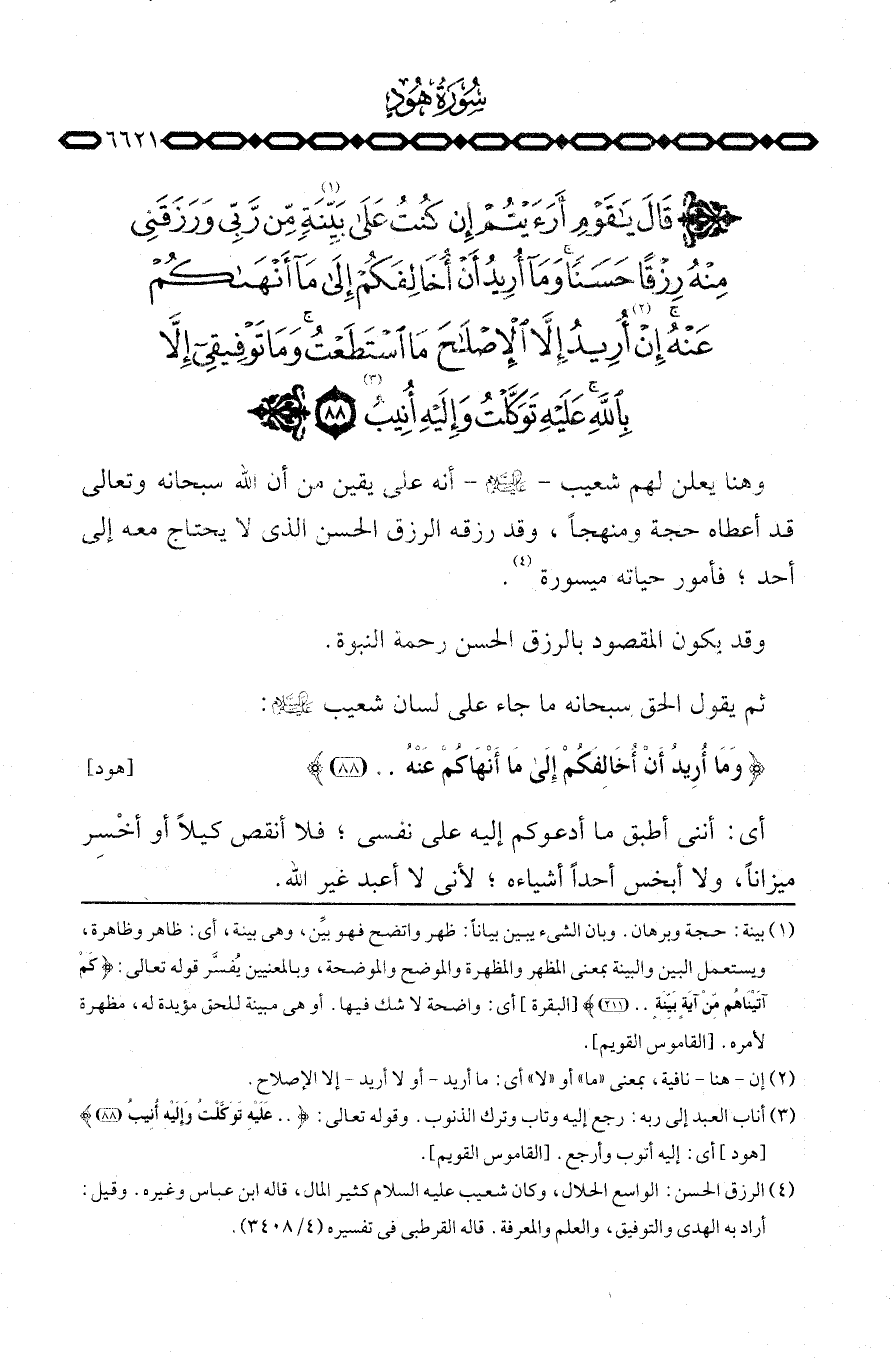 سُورَةُ هُودٍ
٦٦٢١
قَالَ يَٰقَوْمِ أَرَءَيْتُمْ إِن كُنتُ عَلَىٰ بَيِّنَةٍ (١) مِّن رَّبِّى وَرَزَقَنِى
مِنْهُ رِزْقًا حَسَنًا ۚ وَمَآ أُرِيدُ أَنْ أُخَالِفَكُمْ إِلَىٰ مَآ أَنْهَىٰكُمْ
عَنْهُ ۚ إِنْ (٢) أُرِيدُ إِلَّا ٱلْإِصْلَٰحَ مَا ٱسْتَطَعْتُ ۚ وَمَا تَوْفِيقِىٓ إِلَّا
بِٱللَّهِ ۚ عَلَيْهِ تَوَكَّلْتُ وَإِلَيْهِ أُنِيبُ (٣) ٨٨
وهنا يعلن لهم شعيب - عليه السلام - أنه على يقين من أن الله سبحانه وتعالى
قد أعطاه حجة ومنهجاً ، وقد رزقه الرزق الحسن الذى لا يحتاج معه إلى
أحد ؛ فأمور حياته ميسورة (٤) .
وقد يكون المقصود بالرزق الحسن رحمة النبوة.
ثم يقول الحق سبحانه ما جاء على لسان شعيب عليه السلام :
﴿ وَمَا أُرِيدُ أَنْ أُخَالِفَكُمْ إِلَىٰ مَا أَنْهَاكُمْ عَنْهُ .. (٨٨) ﴾ [هود]
أى : أننى أطبق ما أدعوكم إليه على نفسى ؛ فلا أنقص كيلاً أو أخْسِر
ميزاناً، ولا أبخس أحداً أشياءه ؛ لأنى لا أعبد غير الله.
(١) بينة : حجة وبرهان . وبان الشىء يبين بياناً : ظهر واتضح فهو بيِّن، وهى بينة، أى : ظاهر وظاهرة،
ويستعمل البين والبينة بمعنى المظهر والمظهرة والموضح والموضحة، وبالمعنيين يُفسَّر قوله تعالى : ﴿ كَمْ
آتَيْنَاهُم مِّنْ آيَةٍ بَيِّنَةٍ .. (٢١١) ﴾ [البقرة] أى : واضحة لا شك فيها. أو هى مبينة للحق مؤيدة له، مظهرة
لأمره . [القاموس القويم].
(٢) إن - هنا - نافية، بمعنى «ما» أو «لا» أى : ما أريد - أو لا أريد - إلا الإصلاح.
(٣) أناب العبد إلى ربه : رجع إليه وتاب وترك الذنوب . وقوله تعالى : ﴿ .. عَلَيْهِ تَوَكَّلْتُ وَإِلَيْهِ أُنِيبُ (٨٨) ﴾
[هود] أى : إليه أتوب وأرجع . [القاموس القويم].
(٤) الرزق الحسن : الواسع الحلال، وكان شعيب عليه السلام كثير المال، قاله ابن عباس وغيره . وقيل :
أراد به الهدى والتوفيق، والعلم والمعرفة . قاله القرطبى فى تفسيره (٣٤٠٨/٤).